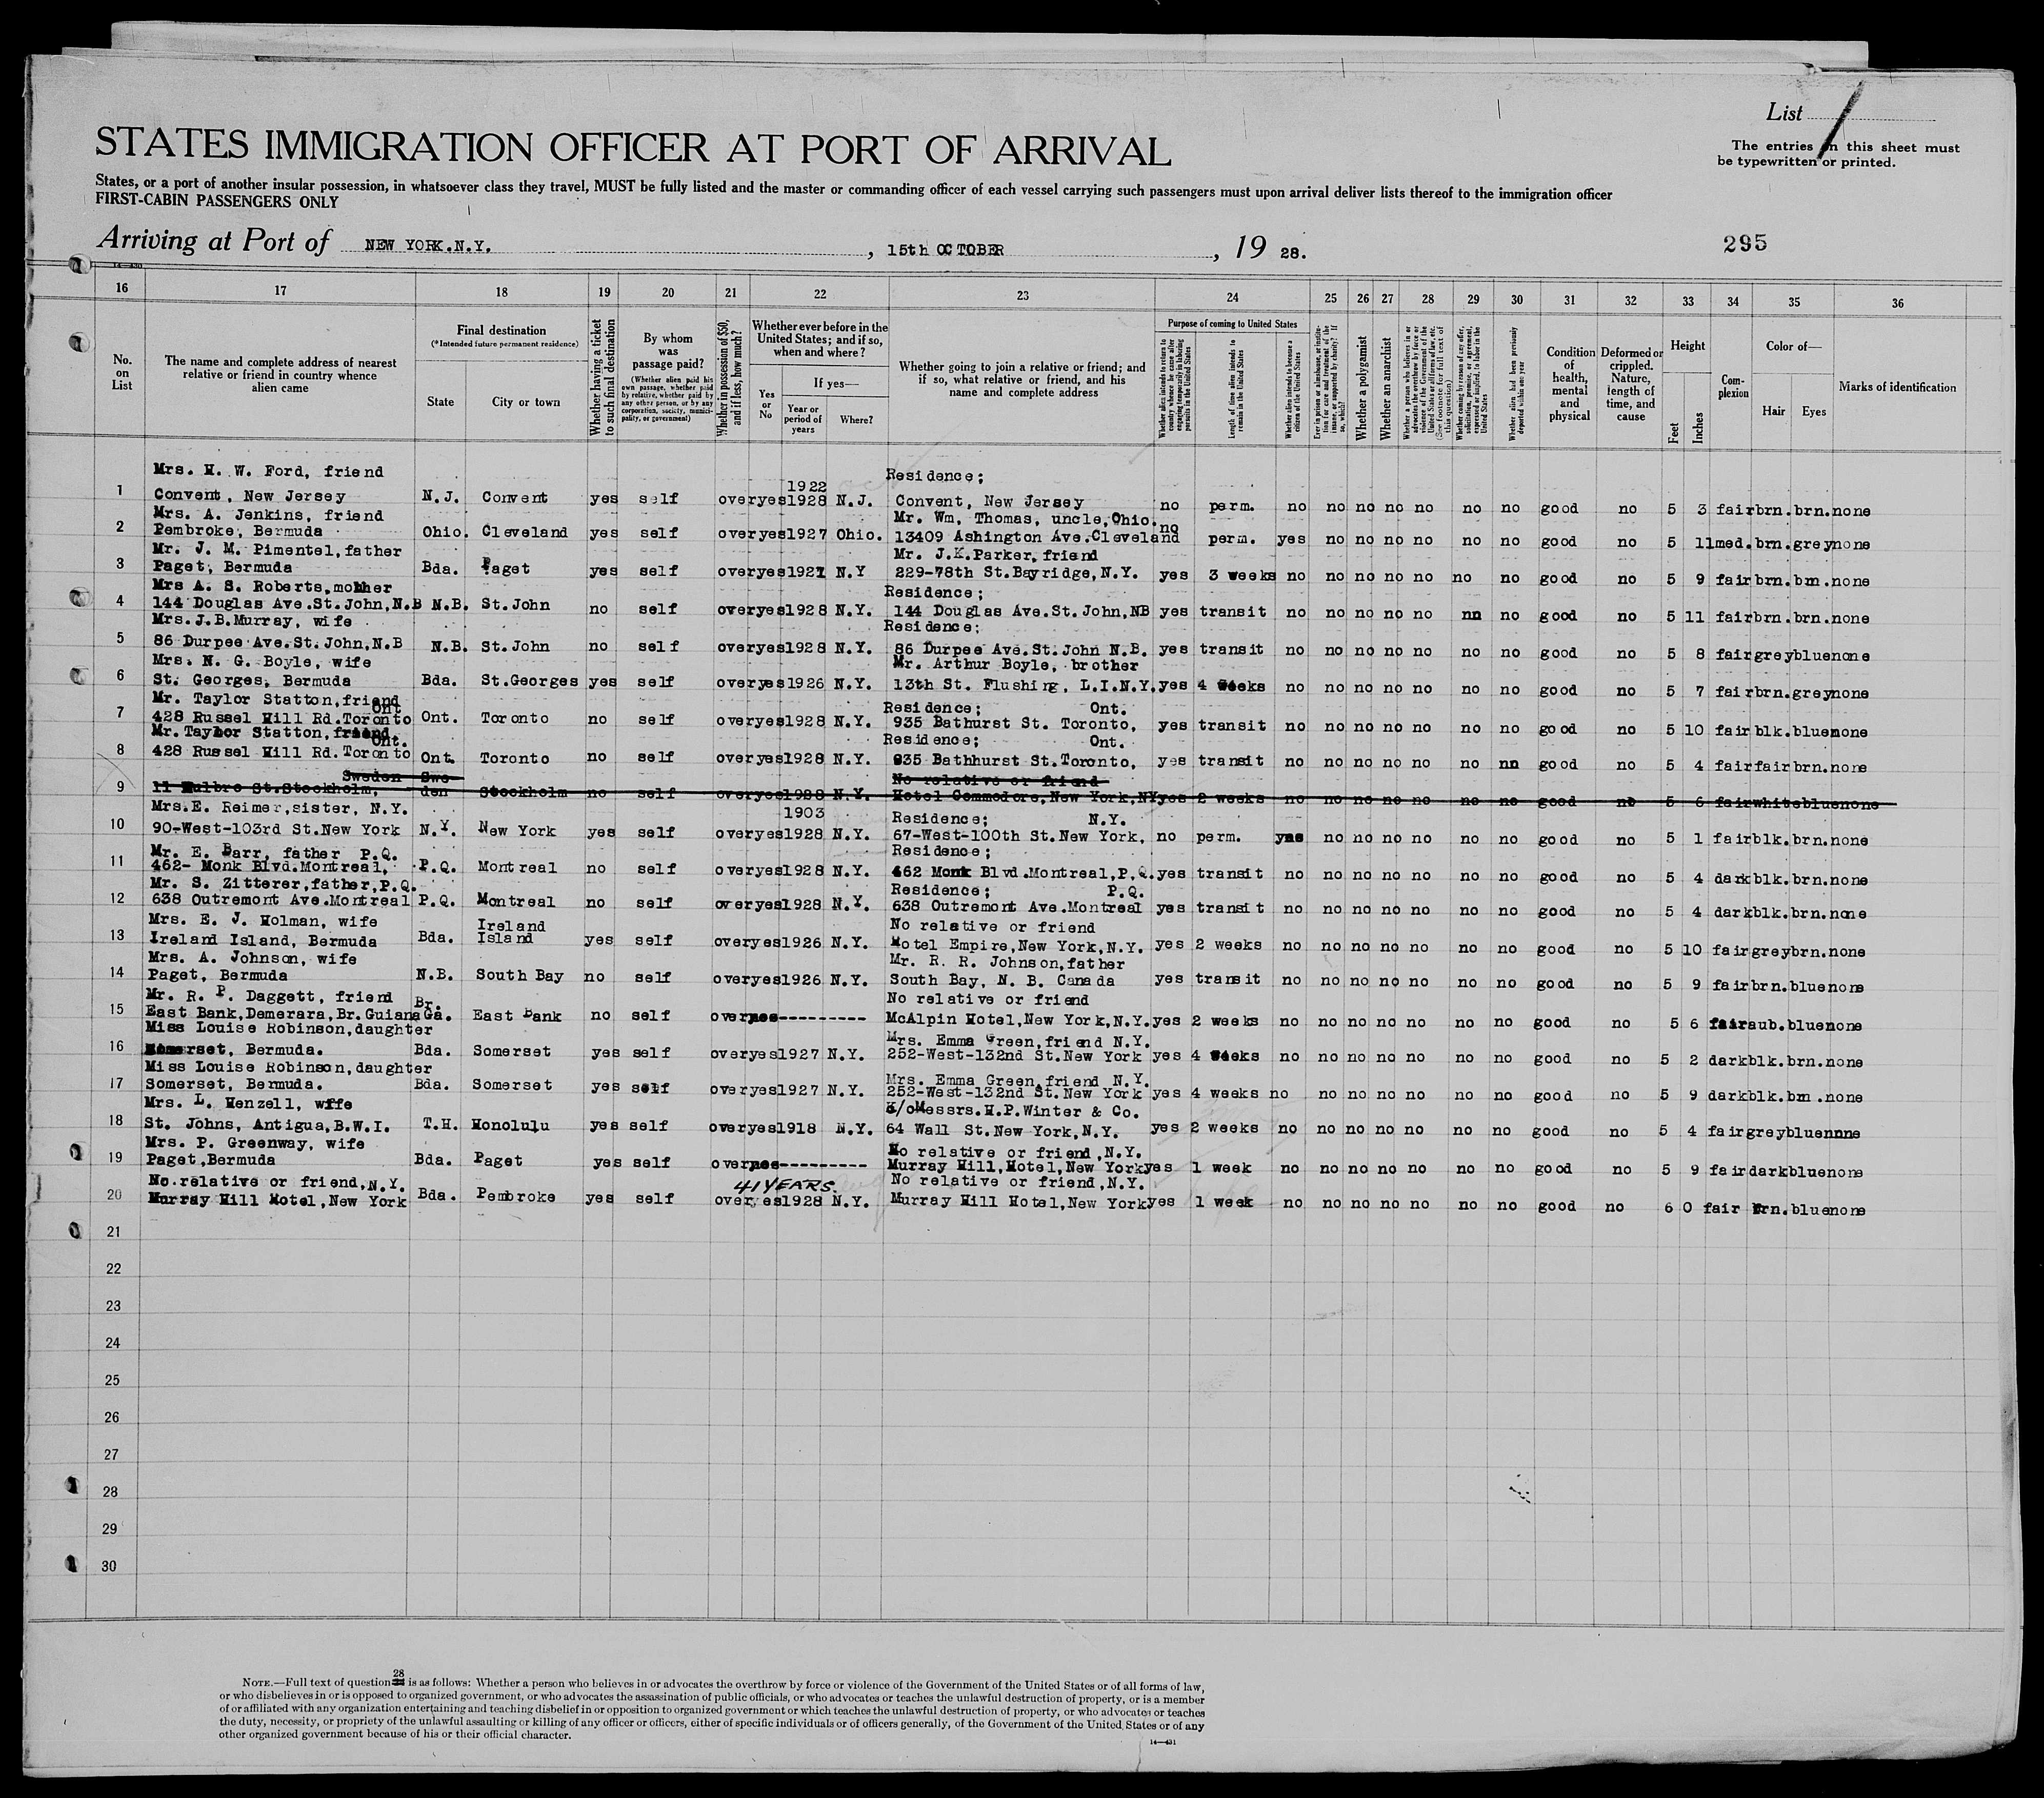 List
The entries on this sheet must
be typewritten or printed.
STATES IMMIGRATION OFFICER AT PORT OF ARRIVAL
States, or a port of another insular possession, in whatsoever class they travel, MUST be fully listed and the master or commanding officer of each vessel carrying such passengers must upon arrival deliver lists thereof to the immigration officer
FIRST-CABIN PASSENGERS ONLY
Arriving at Port of NEW YORK.N.Y. , 15th OCTOBER , 19 28.
295
16 17 18 19 20 21 22 23 24 25 26 27 28 29 30 31 32 33 34 35 36
No. on List
The name and complete address of nearest relative or friend in country whence alien came
Final destination
(*Intended future permanent residence)
State
City or town
Whether having a ticket to such final destination
By whom was passage paid?
(Whether alien paid his own passage, whether paid by relative, whether paid by any other person, or by any corporation, society, municipality, or government)
Whether in possession of $50, and if less, how much?
Whether ever before in the United States; and if so, when and where?
Yes or No
If yes—
Year or period of years
Where?
Whether going to join a relative or friend; and if so, what relative or friend, and his name and complete address
Purpose of coming to United States
Whether alien intends to return to country whence he came after engaging temporarily in laboring pursuits in the United States
Length of time alien intends to remain in the United States
Whether alien intends to become a citizen of the United States
Ever in prison or almshouse, or institution for care and treatment of the insane, or supported by charity? If so, which?
Whether a polygamist
Whether an anarchist
Whether a person who believes in or advocates the overthrow by force or violence of the Government of the United States or all forms of law, etc. (See footnote for full text of this question)
Whether coming by reason of any offer, solicitation, promise, or agreement, expressed or implied, to labor in the United States
Whether alien had been previously deported within one year
Condition of health, mental and physical
Deformed or crippled. Nature, length of time, and cause
Height
Feet
Inches
Complexion
Color of—
Hair
Eyes
Marks of identification
Mrs. H. W. Ford, friend Residence;
1922
1 Convent, New Jersey N.J. Convent yes self over yes 1928 N.J. Convent, New Jersey no perm. no no no no no no no good no 5 3 fair brn. brn. none
Mrs. A. Jenkins, friend Mr. Wm, Thomas, uncle, Ohio.
2 Pembroke, Bermuda Ohio. Cleveland yes self over yes 1927 Ohio. 13409 Ashington Ave.Cleveland no perm. yes no no no no no no good no 5 11 med. brn. grey none
Mr. J. M. Pimentel, father Mr. J.K.Parker, friend
3 Paget, Bermuda Bda. Paget yes self over yes 1927 N.Y 229-78th St.Bayridge, N.Y. yes 3 weeks no no no no no no no good no 5 9 fair brn. brn. none
Mrs A. S. Roberts, mother Residence;
4 144 Douglas Ave.St.John, N.B N.B. St.John no self over yes 1928 N.Y. 144 Douglas Ave.St.John, NB yes transit no no no no no nn no good no 5 11 fair brn. brn. none
Mrs.J.B.Murray, wife Residence;
5 86 Durpee Ave.St.John, N.B N.B. St.John no self over yes 1928 N.Y. 86 Durpee Ave.St.John N.B. yes transit no no no no no no no good no 5 8 fair grey blue none
Mrs. N. G. Boyle, wife Mr. Arthur Boyle, brother
6 St. Georges, Bermuda Bda. St.Georges yes self over yes 1926 N.Y. 13th St. Flushing, L.I.N.Y. yes 4 weeks no no no no no no no good no 5 7 fair brn. grey none
Mr. Taylor Statton, friend Ont Residence; Ont.
7 428 Russel Hill Rd.Toronto Ont. Toronto no self over yes 1928 N.Y. 935 Bathurst St. Toronto, yes transit no no no no no no no good no 5 10 fair blk. blue none
Mr. Taylor Statton, friend Ont. Residence; Ont.
8 428 Russel Hill Rd. Toronto Ont. Toronto no self over yes 1928 N.Y. 935 Bathhurst St.Toronto, yes transit no no no no no no nn good no 5 4 fair fair brn. none
Sweden Swe- No relative or friend
9 11 Hulbre St.Stockholm, den Stockholm no self over yes 1928 N.Y. Hotel Commodore, New York, NY yes 2 weeks no no no no no no no good no 5 6 fair white blue none
Mrs.E. Reimer, sister, N.Y. 1903 Residence; N.Y.
10 90-West-103rd St.New York N.Y. New York yes self over yes 1928 N.Y. 67-West-100th St.New York, no perm. yes no no no no no no good no 5 1 fair blk. brn. none
Mr. E. Barr, father P.Q. Residence;
11 462- Monk Blvd.Montreal, P.Q. Montreal no self over yes 1928 N.Y. 462 Monk Blvd.Montreal, P,Q. yes transit no no no no no no no good no 5 4 dark blk. brn. none
Mr. S. Zitterer, father, P.Q. Residence; P.Q.
12 638 Outremont Ave.Montreal P.Q. Montreal no self over yes 1928 N.Y. 638 Outremont Ave.Montreal yes transit no no no no no no no good no 5 4 dark blk. brn. none
Mrs. E. J. Holman, wife Ireland No relative or friend
13 Ireland Island, Bermuda Bda. Island yes self over yes 1926 N.Y. Hotel Empire, New York, N.Y. yes 2 weeks no no no no no no no good no 5 10 fair grey brn. none
Mrs. A. Johnson, wife Mr. R. R. Johnson, father
14 Paget, Bermuda N.B. South Bay no self over yes 1926 N.Y. South Bay, N. B. Canada yes transit no no no no no no no good no 5 9 fair brn. blue none
Mr. R. P. Daggett, friend Br. No relative or friend
15 East Bank, Demerara, Br. Guiana Ga. East Bank no self over nos---------- McAlpin Hotel, New York, N.Y. yes 2 weeks no no no no no no no good no 5 6 fair aub. blue none
Miss Louise Robinson, daughter Mrs. Emma Green, friend N.Y.
16 Somerset, Bermuda. Bda. Somerset yes self over yes 1927 N.Y. 252-West-132nd St.New York yes 4 weeks no no no no no no no good no 5 2 dark blk. brn. none
Miss Louise Robinson, daughter Mrs. Emma Green, friend N.Y.
17 Somerset, Bermuda. Bda. Somerset yes self over yes 1927 N.Y. 252-West-132nd St.New York yes 4 weeks no no no no no no no good no 5 9 dark blk. brn. none
Mrs. L. Henzell, wffe /oMessrs.H.P.Winter & Co.
18 St. Johns, Antigua, B.W.I. T.H. Honolulu yes self over yes 1918 N.Y. 64 Wall St.New York, N.Y. yes 2 weeks no no no no no no no good no 5 4 fair grey blue nnne
Mrs. P. Greenway, wife No relative or friend, N.Y.
19 Paget, Bermuda Bda. Paget yes self over nos---------- Murray Hill, Hotel, New York yes 1 week no no no no no no no good no 5 9 fair dark blue none
No relative or friend, N.Y. 41 YEARS. No relative or friend, N.Y.
20 Murray Hill Hotel, New York Bda. Pembroke yes self over yes 1928 N.Y. Murray Hill Hotel, New York yes 1 week no no no no no no no good no 6 0 fair brn. blue none
21
22
23
24
25
26
27
28
29
30
28
NOTE.—Full text of question is as follows: Whether a person who believes in or advocates the overthrow by force or violence of the Government of the United States or of all forms of law,
or who disbelieves in or is opposed to organized government, or who advocates the assassination of public officials, or who advocates or teaches the unlawful destruction of property, or is a member
of or affiliated with any organization entertaining and teaching disbelief in or opposition to organized government or which teaches the unlawful destruction of property, or who advocates or teaches
the duty, necessity, or propriety of the unlawful assaulting or killing of any officer or officers, either of specific individuals or of officers generally, of the Government of the United States or of any
other organized government because of his or their official character.
14—431